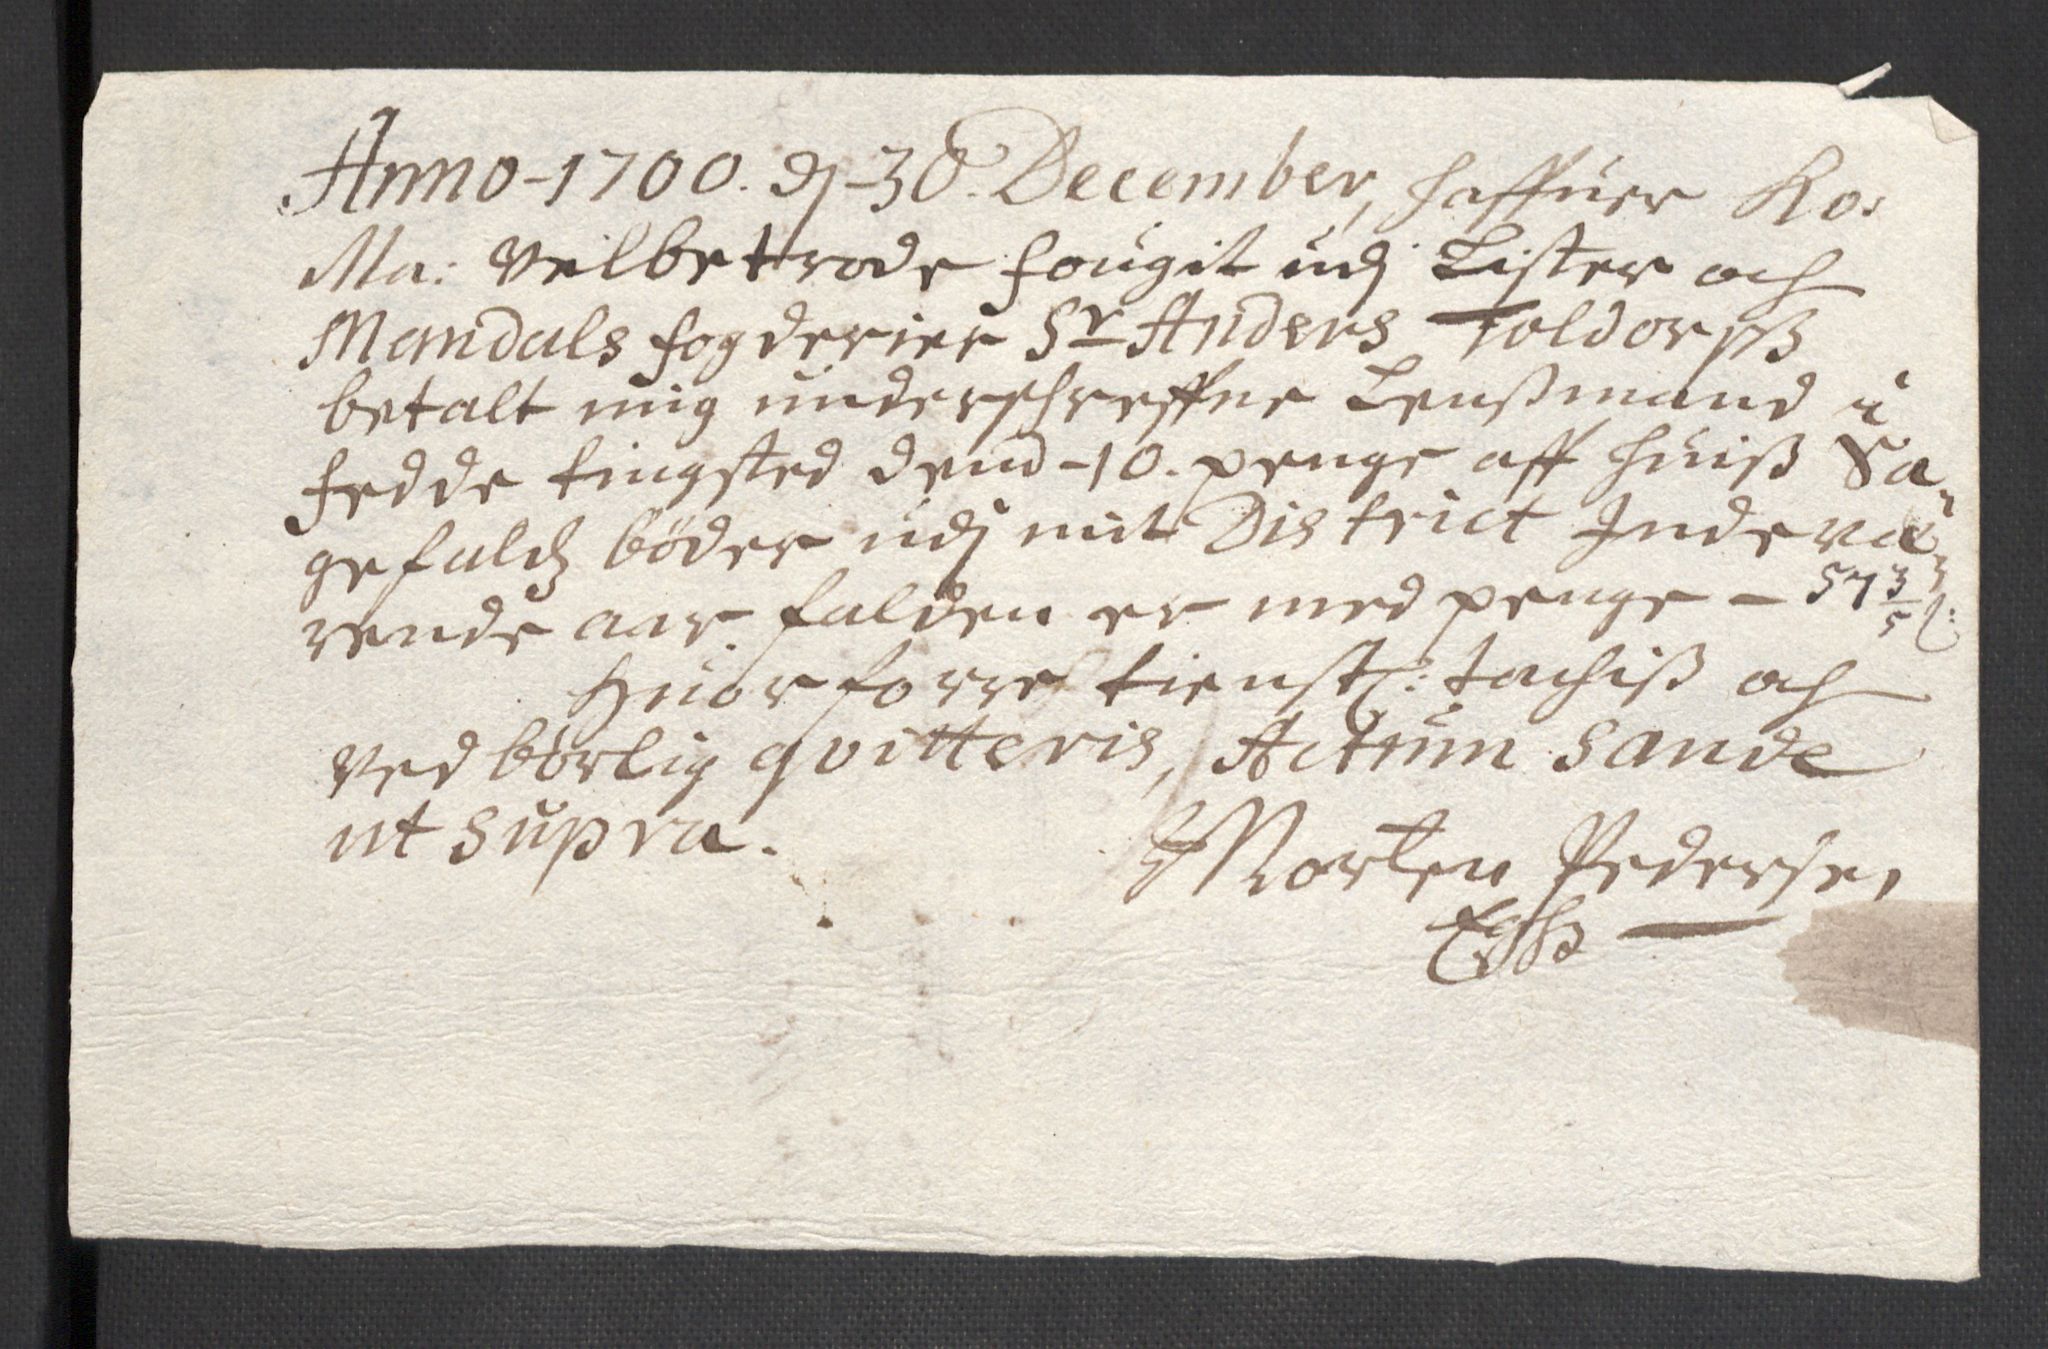 Anno-1700. dj-30. December, haffuer Ko:
Ma: Velbetrode fougit udj Lister och
Mandals fogderier Sr Anders Toldorpß
betalt mig underschreffne Lenßmand i
fedde tingsted dend-10. penge aff huiß Sa„
gefaldz böder udj mit District Indevæ„
rende aar falden er med penge - 57 3/5 ß:
Huorforre tienstl: tachiß och
Vedbörlig qvitteris, Actum Sande
ut supra.
Morten Pedersen
Eghß